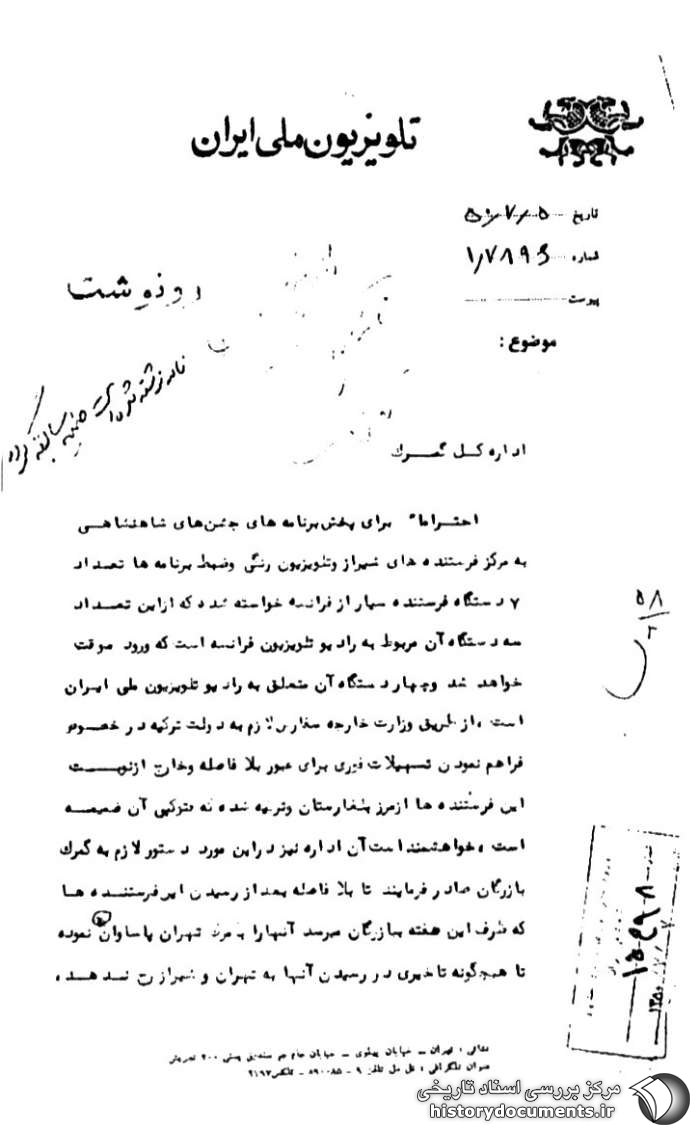 تلویزیون ملی ایران
تاریخ ۵۰/۷/۵
شماره
پیوست
موضوع :
رونوشت
اداره کل گمرك
احتراما" برای پخش برنامه های جشن‌های شاهنشاهی
به مرکز فرستنده های شیراز وتلویزیون رنگی وضبط برنامه ها تعداد
۷ دستگاه فرستنده سیار از فرانسه خواسته شده که ازاین تعداد
سه دستگاه آن مربوط به رادیو تلویزیون فرانسه است که ورود موقت
خواهد شد وچهار دستگاه آن متعلق به رادیو تلویزیون ملی ایران
است ، از طریق وزارت خارجه سفارش لازم به دولت ترکیه در خصوص
فراهم نمودن تسهیلات فوری برای عبور بلا فاصله وخارج ازنوبت
این فرستنده ها ازمرز بلغارستان وترکیه شده که فتوکپی آن ضمیمه
است ، خواهشمند است آن اداره نیز دراین مورد دستور لازم به گمرك
بازرگان صادر فرمایند تا بلا فاصله بعد از رسیدن این فرستنده ها
که ظرف این هفته ببازرگان میرسد آنهارا بامرند تهران پاساوان نموده
تا هیچگونه تاخیری در رسیدن آنها به تهران و شیراز رخ ندهد ،
نشانی : تهران – خیابان پهلوی – خیابان جام جم صندوق پستی ۲۰۰ تجریش
عنوان تلگرافی : تل مل تلفن ۹ – ۵۹۰۰۸۵ – تلکس ۲۱۹۳
۵۸
۲
۱۵۴۹۸
۱۳۵۰
مرکز بررسی اسناد تاریخی
historydocuments.ir